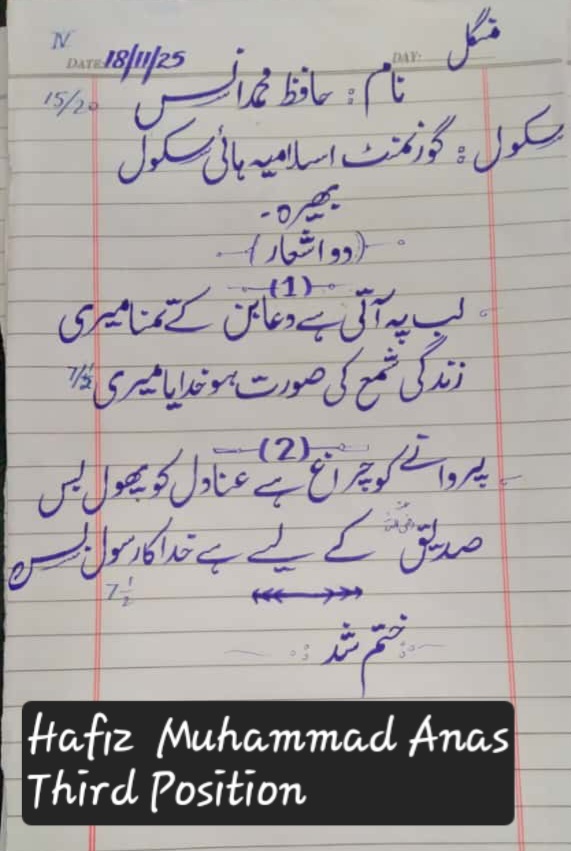 IV
منگل
DATE: 18/11/25 DAY:
15/20
نام : حافظ محمد انس
سکول : گورنمنٹ اسلامیہ ہائی سکول
بھیرہ -
(دو اشعار)
(1)
لب پہ آتی ہے دعا بن کے تمنا میری
زندگی شمع کی صورت ہو خدایا میری
7½
(2)
پروانے کو چراغ ہے عنادل کو پھول بس
صدیقؓ کے لیے ہے خدا کا رسول بس
7½
ختم شد
Hafiz Muhammad Anas
Third Position